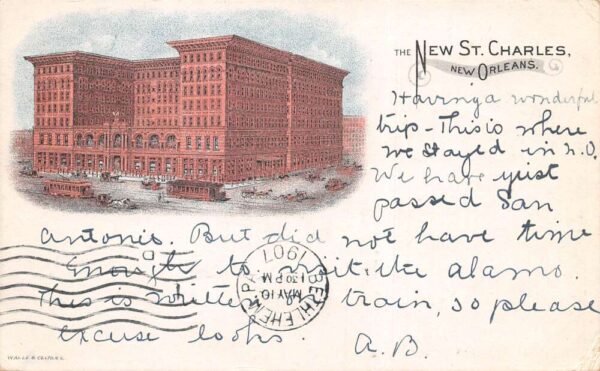 THE NEW ST. CHARLES,
NEW ORLEANS.
Having a wonderful
trip - This is where
we stayed in N.O.
We have just
passed San
Antonio. But did not have time
enough to visit the alamo.
This is written train, so please
excuse looks. A.B.
BETHLEHEM PA.
MAY 10
1 30 PM
1907